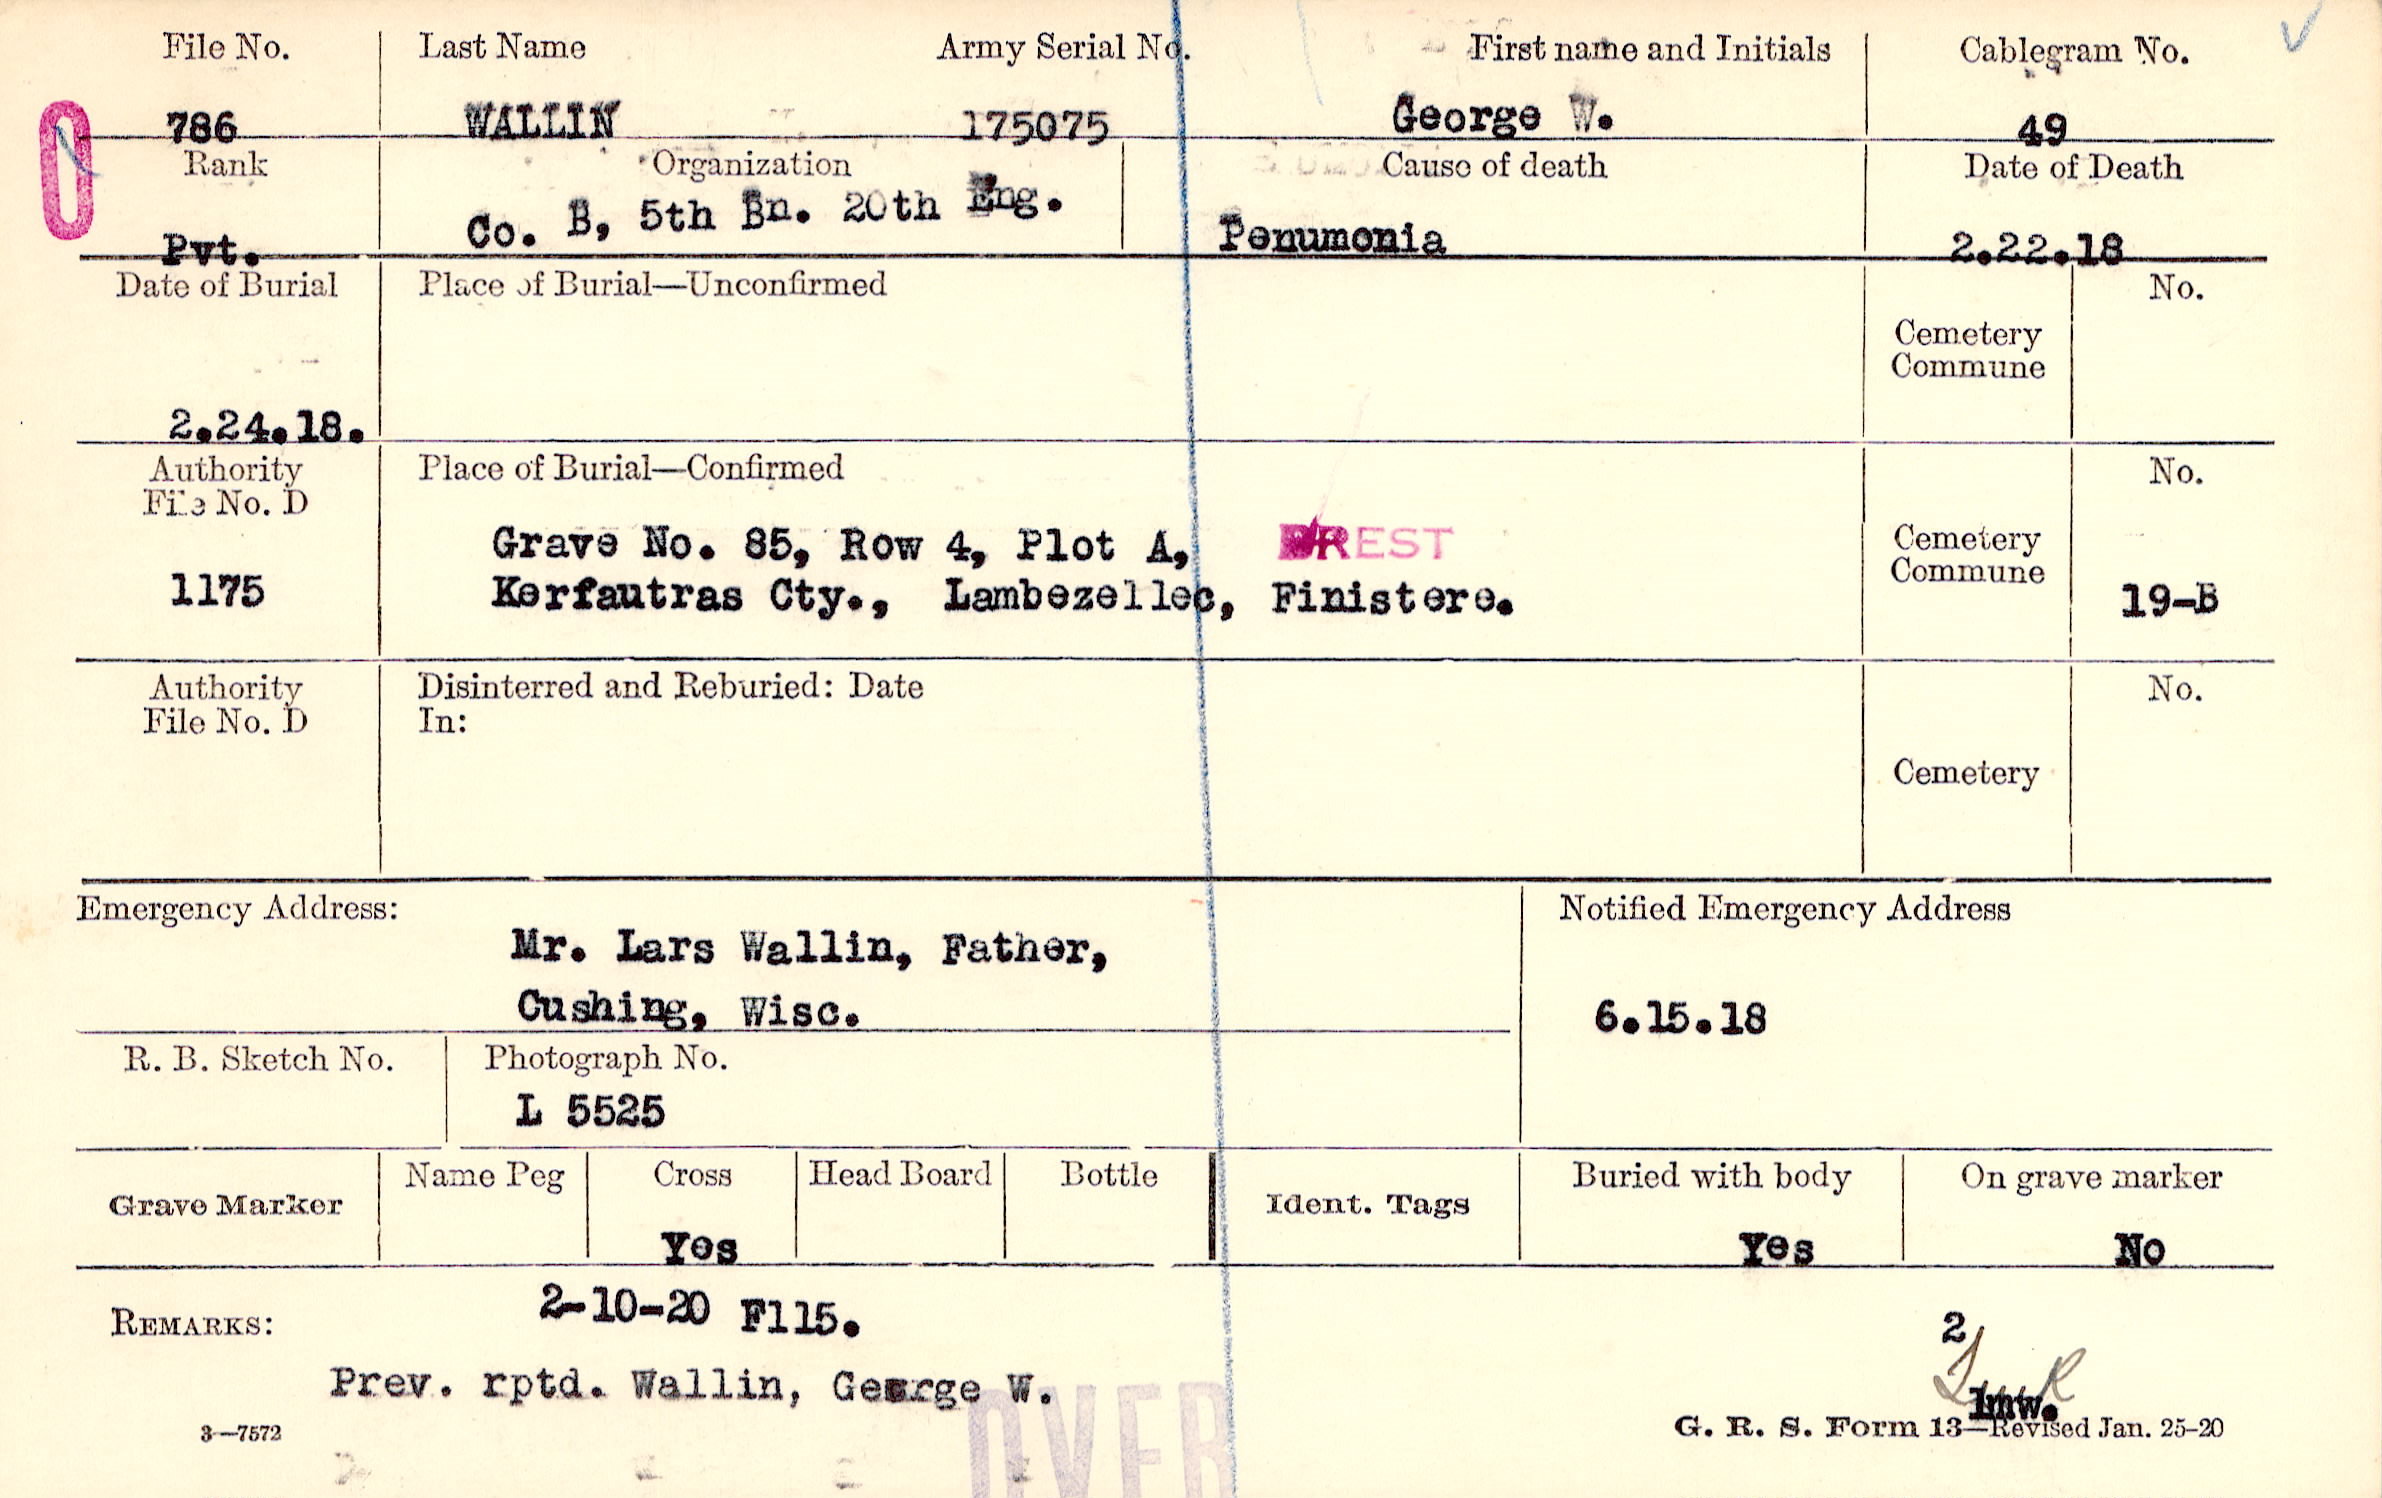 File No. Last Name Army Serial No. First name and Initials Cablegram No.
786 WALLIN 175075 George W. 49
Rank Organization Cause of death Date of Death
Pvt. Co. B, 5th Bn. 20th Eng. Penumonia 2.22.18
Date of Burial Place of Burial—Unconfirmed No.
Cemetery
Commune
2.24.18.
Authority Place of Burial—Confirmed No.
File No. D
Grave No. 85, Row 4, Plot A, BREST Cemetery
1175 Kerfautras Cty., Lambezellec, Finistere. Commune 19-B
Authority Disinterred and Reburied: Date No.
File No. D In:
Cemetery
Emergency Address: Notified Emergency Address
Mr. Lars Wallin, Father,
Cushing, Wisc. 6.15.18
R. B. Sketch No. Photograph No.
L 5525
Grave Marker Name Peg Cross Head Board Bottle Ident. Tags Buried with body On grave marker
Yes Yes No
REMARKS: 2-10-20 F115. 2
Prev. rptd. Wallin, George W. lmw.
3—7572 OVER G. R. S. Form 13—Revised Jan. 25-20